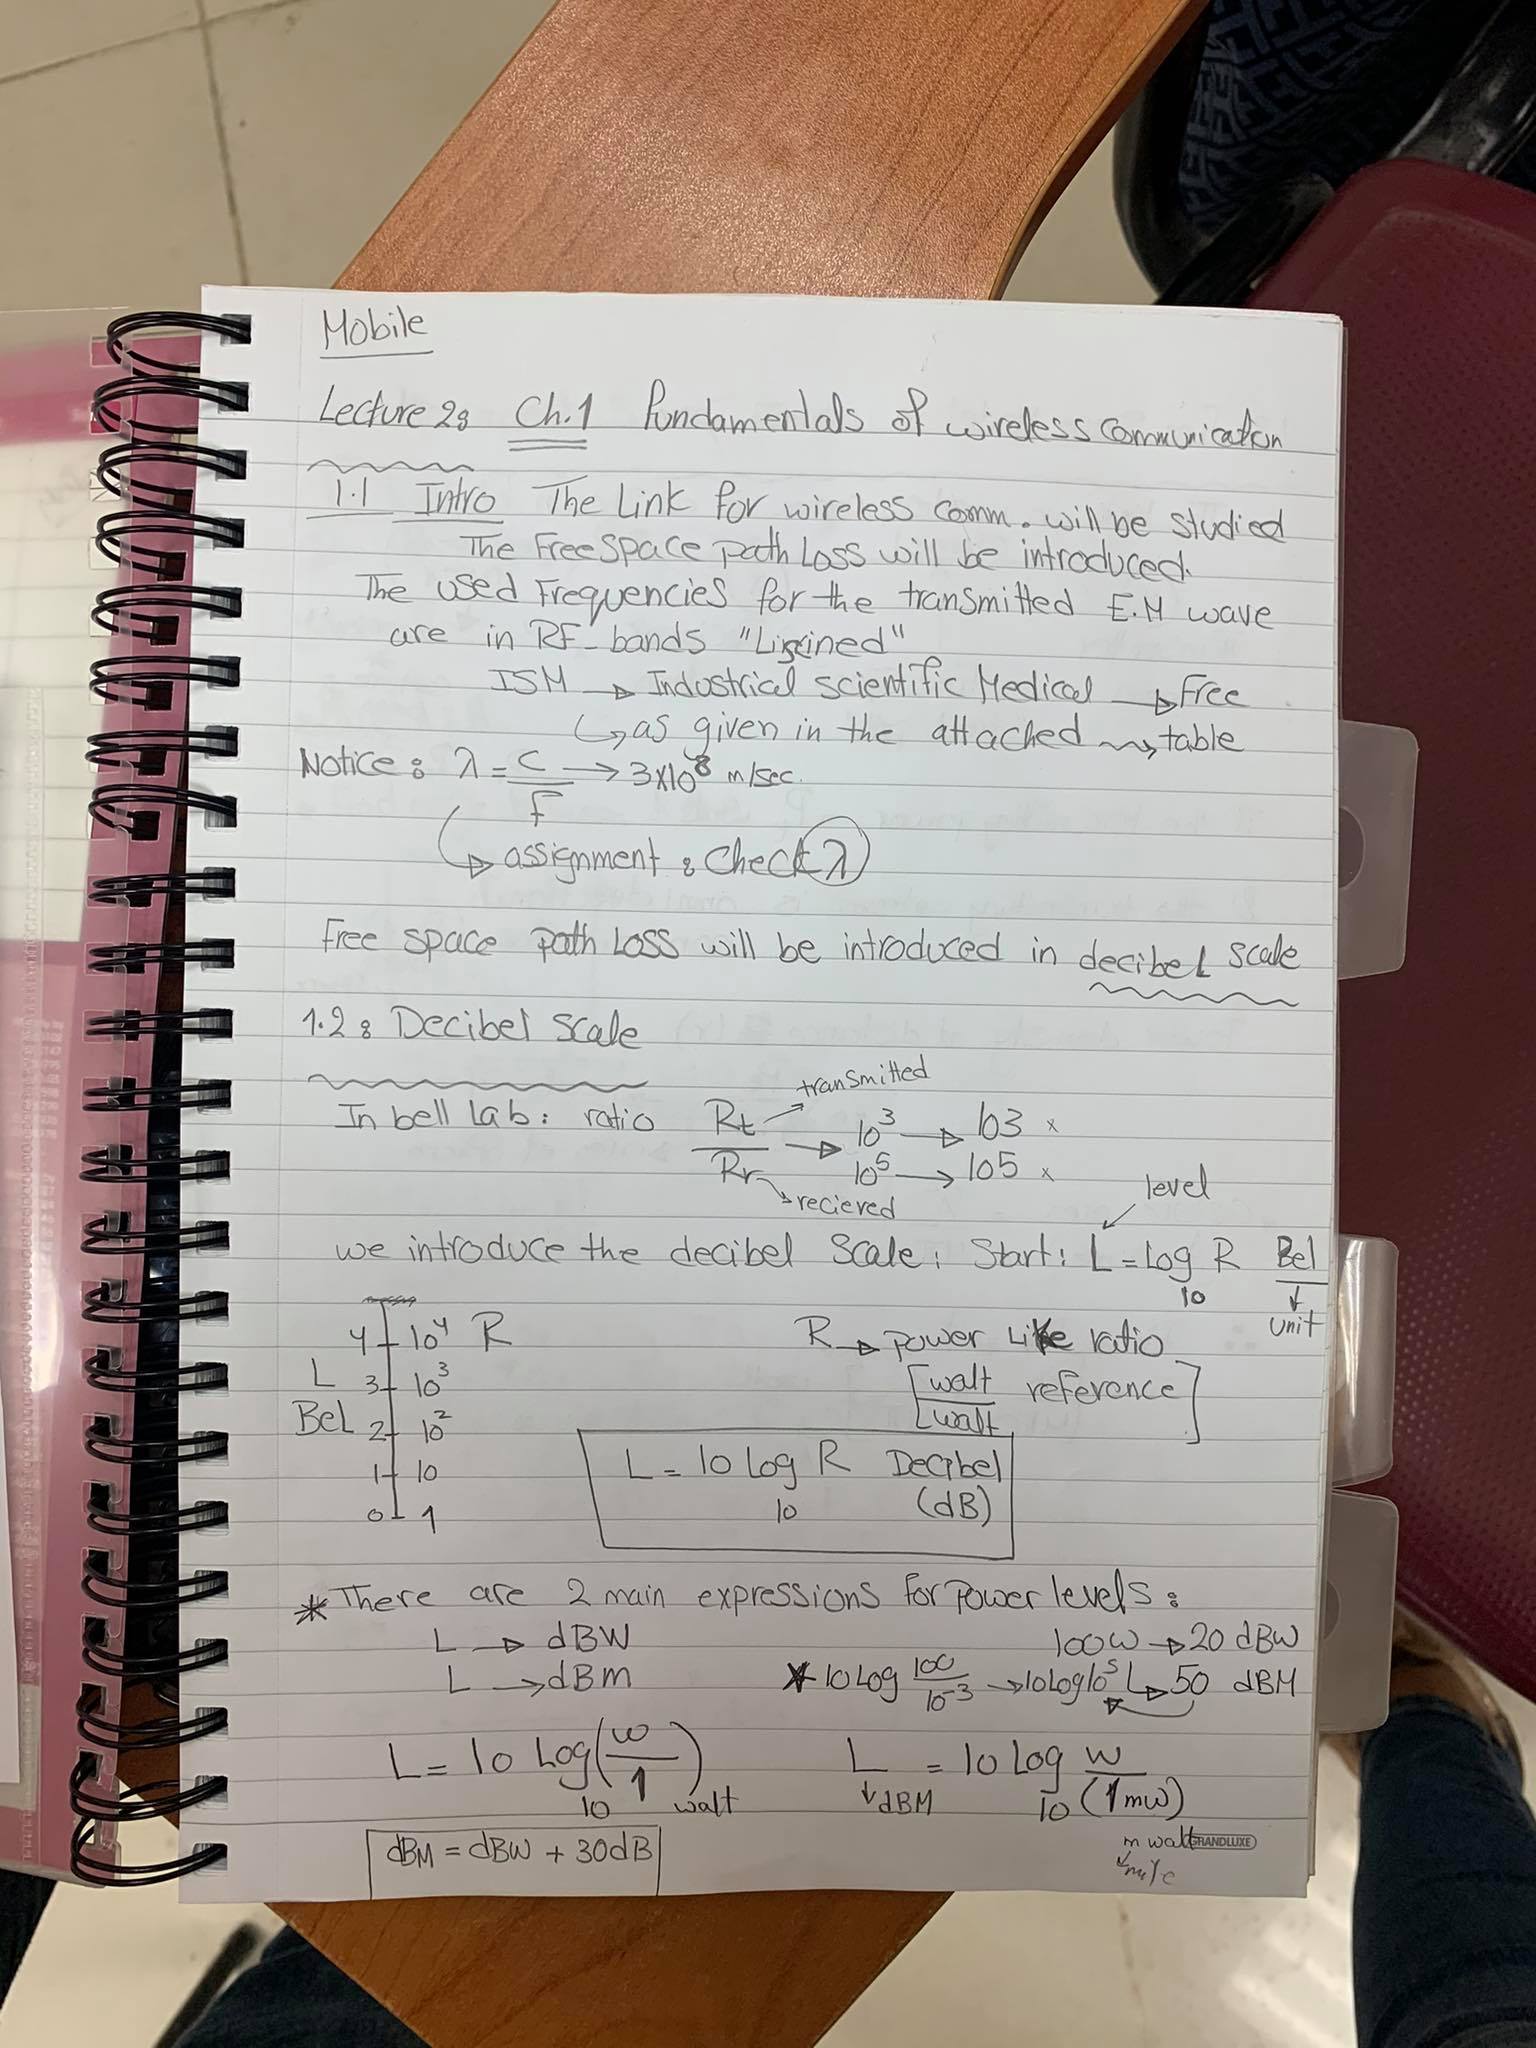 Mobile
Lecture 2: Ch.1 Fundamentals of wireless communication
1.1 Intro The Link for wireless comm. will be studied
The Free space path Loss will be introduced.
The used Frequencies for the transmitted E.M wave
are in RF-bands
ISM → Industrial scientific Medical → Free
↳ as given in the attached → table
Notice: λ = c/f → 3x10⁸ m/sec.
↳ assignment: check λ
Free space path Loss will be introduced in decibel scale
1.2: Decibel Scale
transmitted
In bell Lab: ratio Rt/Rr → 10³ → 103 x
10⁵ → 105 x
recieved
level
we introduce the decibel Scale: Start: L = Log₁₀ R Bel
unit
4 10⁴ R
R → power Like ratio
L 3 10³
[watt/watt reference]
Bel 2 10²
1 10
L = 10 Log₁₀ R Decibel
(dB)
0 1
* There are 2 main expressions for power levels:
L → dBW 100W → 20 dBW
L → dBm * 10 Log 100/10⁻³ → 10Log10⁵ ↳ 50 dBM
L = 10 Log₁₀ (w/1) watt
L = 10 Log₁₀ w/(1mw)
↓ dBM
dBM = dBW + 30dB
m watt
GRANDLUXE